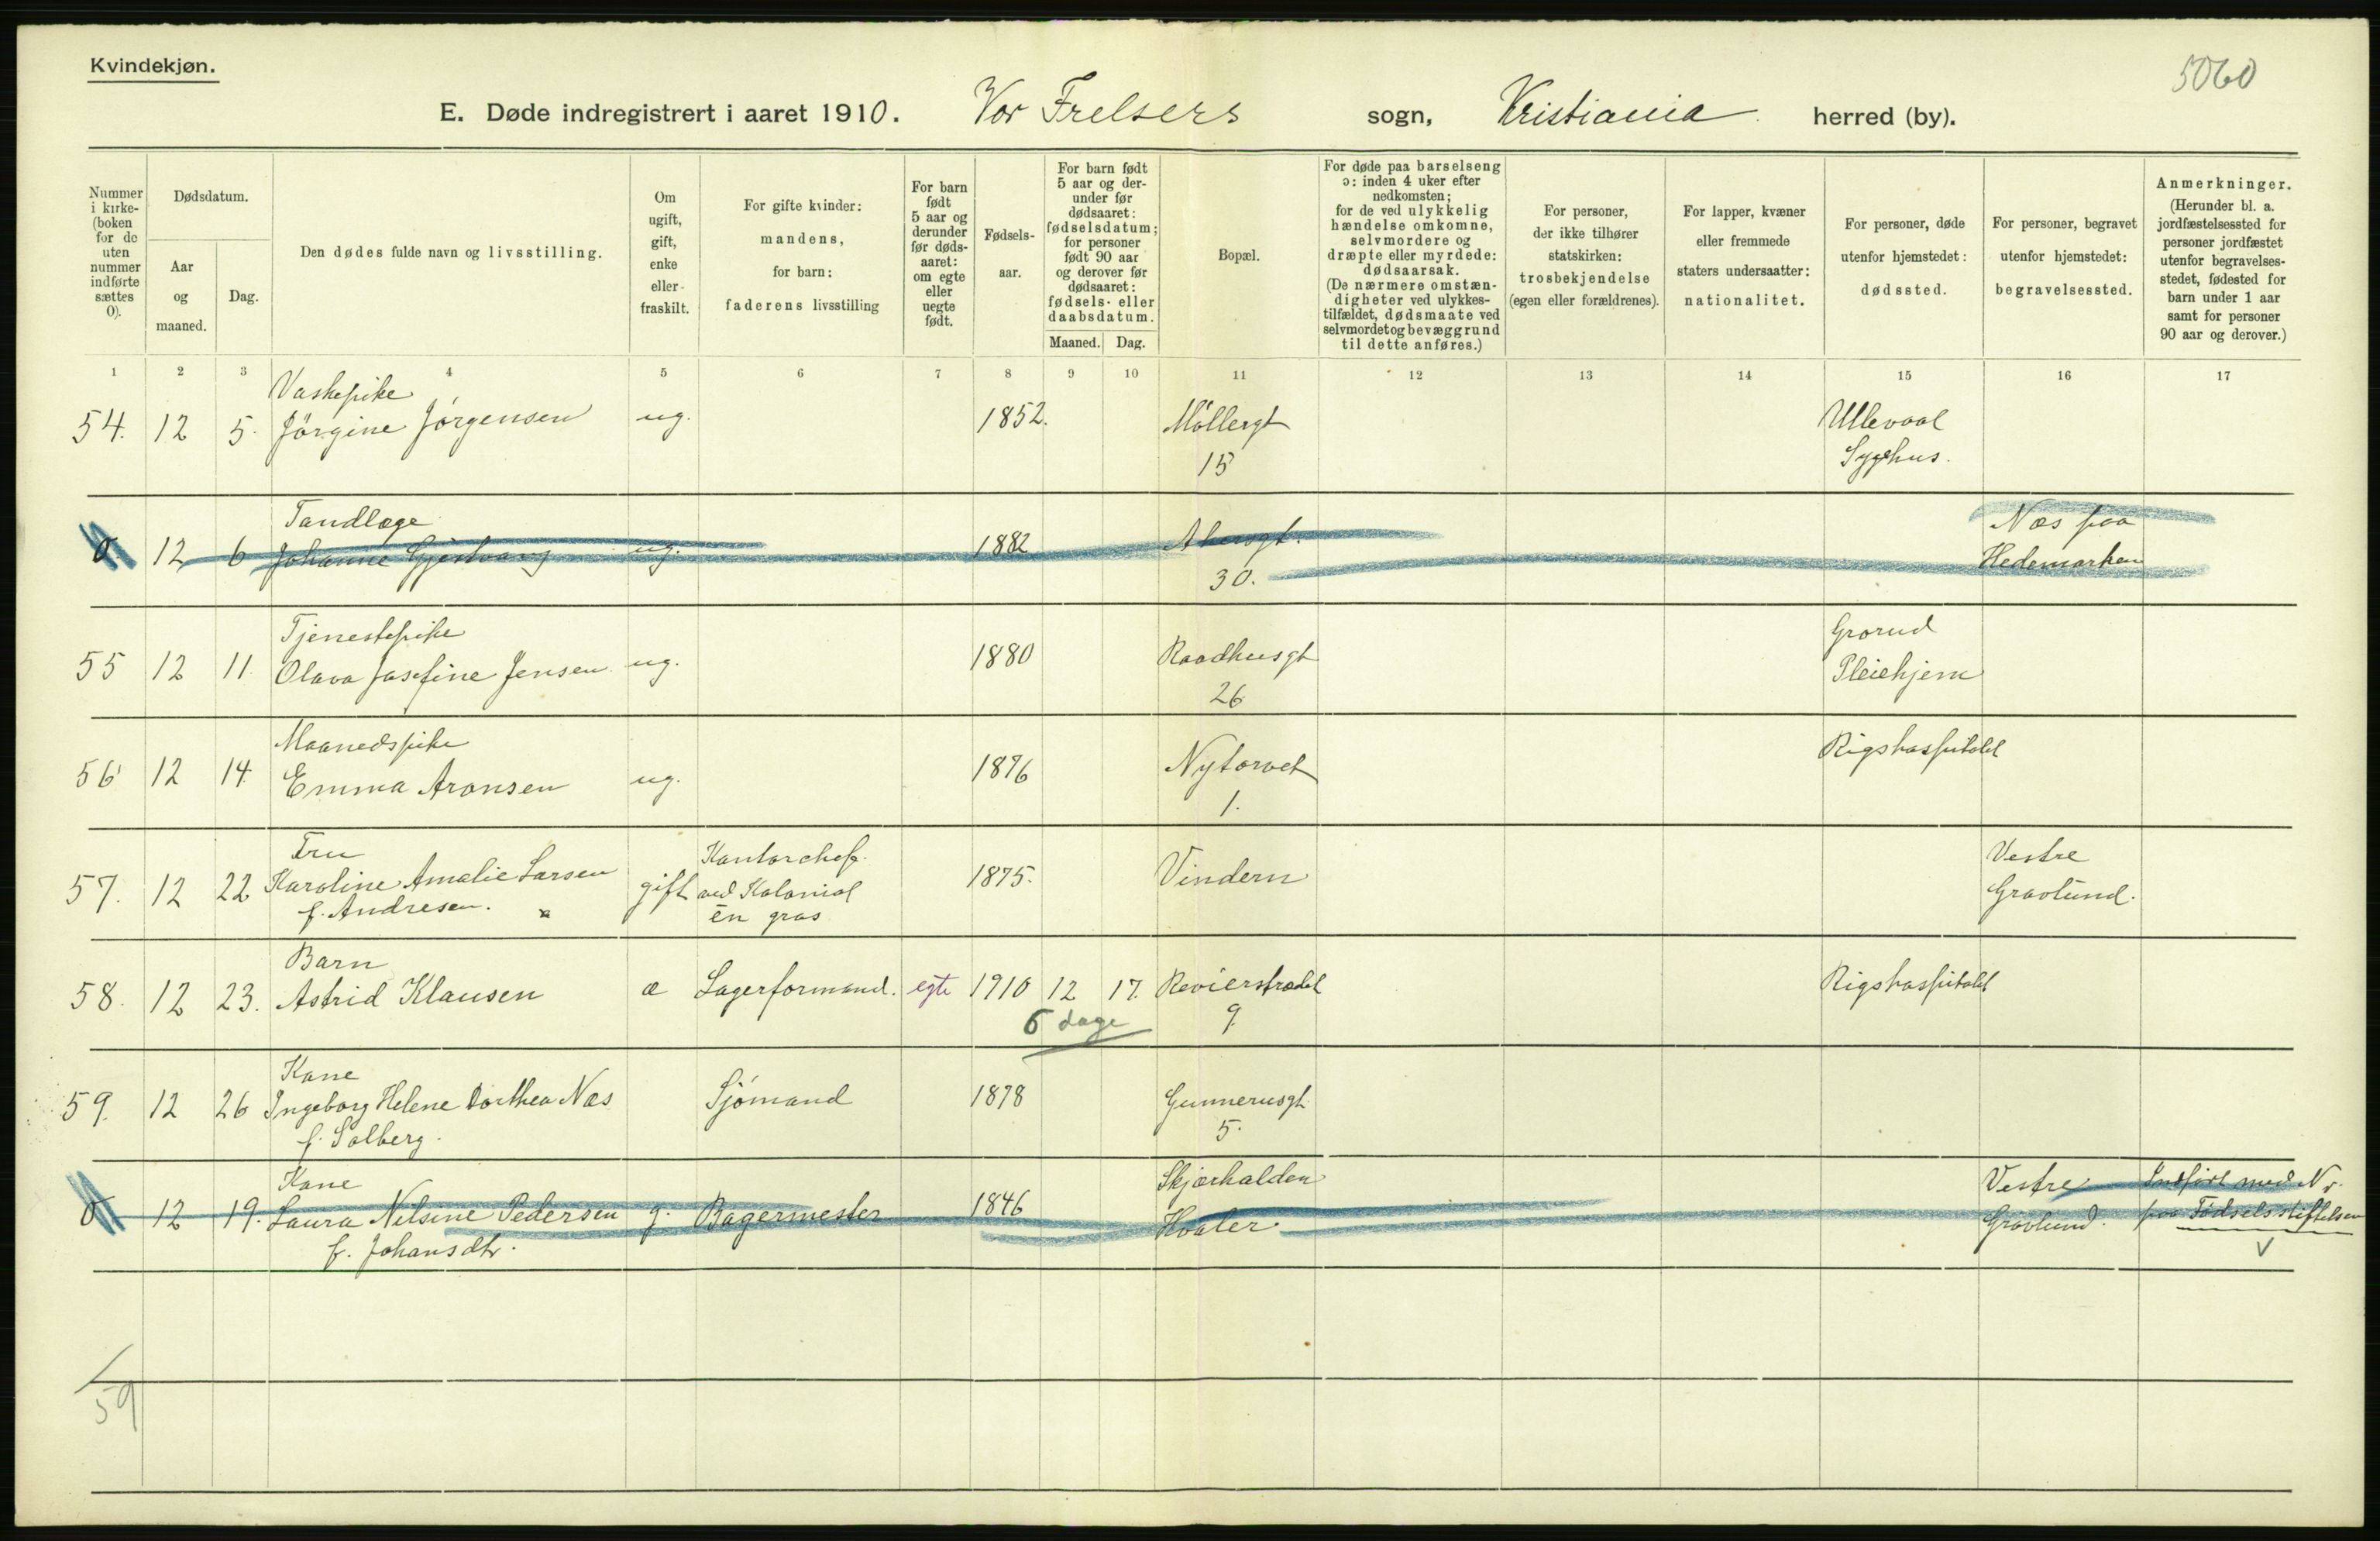 Kvindekjøn.
5060
E. Døde indregistrert i aaret 1910. Vor Frelsers sogn, Kristiania herred (by).
Nummer i kirke- (boken for de uten nummer indførte sættes 0).
Dødsdatum.
Aar og maaned.
Dag.
Den dødes fulde navn og livsstilling.
Om ugift, gift, enke eller fraskilt.
For gifte kvinder: mandens, for barn: faderens livsstilling
For barn født 5 aar og derunder før døds- aaret: om egte eller uegte født.
Fødsels- aar.
For barn født 5 aar og der- under før dødsaaret: fødselsdatum; for personer født 90 aar og derover før dødsaaret: fødsels- eller daabsdatum.
Maaned. Dag.
Bopæl.
For døde paa barselseng ɔ: inden 4 uker efter nedkomsten; for de ved ulykkelig hændelse omkomne, selvmordere og dræpte eller myrdede: dødsaarsak. (De nærmere omstæn- digheter ved ulykkes- tilfældet, dødsmaate ved selvmordet og bevæggrund til dette anføres.)
For personer, der ikke tilhører statskirken: trosbekjendelse (egen eller forældrenes).
For lapper, kvæner eller fremmede staters undersaatter: nationalitet.
For personer, døde utenfor hjemstedet: dødssted.
For personer, begravet utenfor hjemstedet: begravelsessted.
Anmerkninger. (Herunder bl. a. jordfæstelsessted for personer jordfæstet utenfor begravelses- stedet, fødested for barn under 1 aar samt for personer 90 aar og derover.)
1 2 3 4 5 6 7 8 9 10 11 12 13 14 15 16 17
Vaskepike
54. 12 5. Jörgine Jörgensen ug. 1852. Möllergt Ullevaal
15 Sygehus.
Tandlæge Næs paa
0. 12 6 Johanne Gjestvang ug. 1882 Akersgt. Hedemarken
30.
Tjenestepike Grorud
55 12 11 Olava Josefine Jensen ug. 1880 Raadhusgt Pleiehjem
26
Maanedspike Rigshospitalet
56 12 14. Emma Aronsen ug. 1876 Nytorvet
1.
Fru Kontorchef. Vestre
57. 12 22 Karoline Amalie Larsen gift ved Kolonial 1875. Vindern Gravlund.
f. Andresen. en gros
Barn
58. 12 23. Astrid Klausen æ Lagerformand. egte 1910 12 17. Revierstrædet Rigshospitalet
6 dage 9.
Kone
59. 12 26 Ingeborg Helene Dorthea Næs Sjömand 1878 Gunnerusgt
f. Solberg. 5.
Kone Skjærhalden Vestre Indfört med Nr.
0 12 19. Laura Nilsine Pedersen g. Bagermester 1846 Hvaler. Gravlund. paa Fødselsstiftelsen
f. Johansdtr. V
59